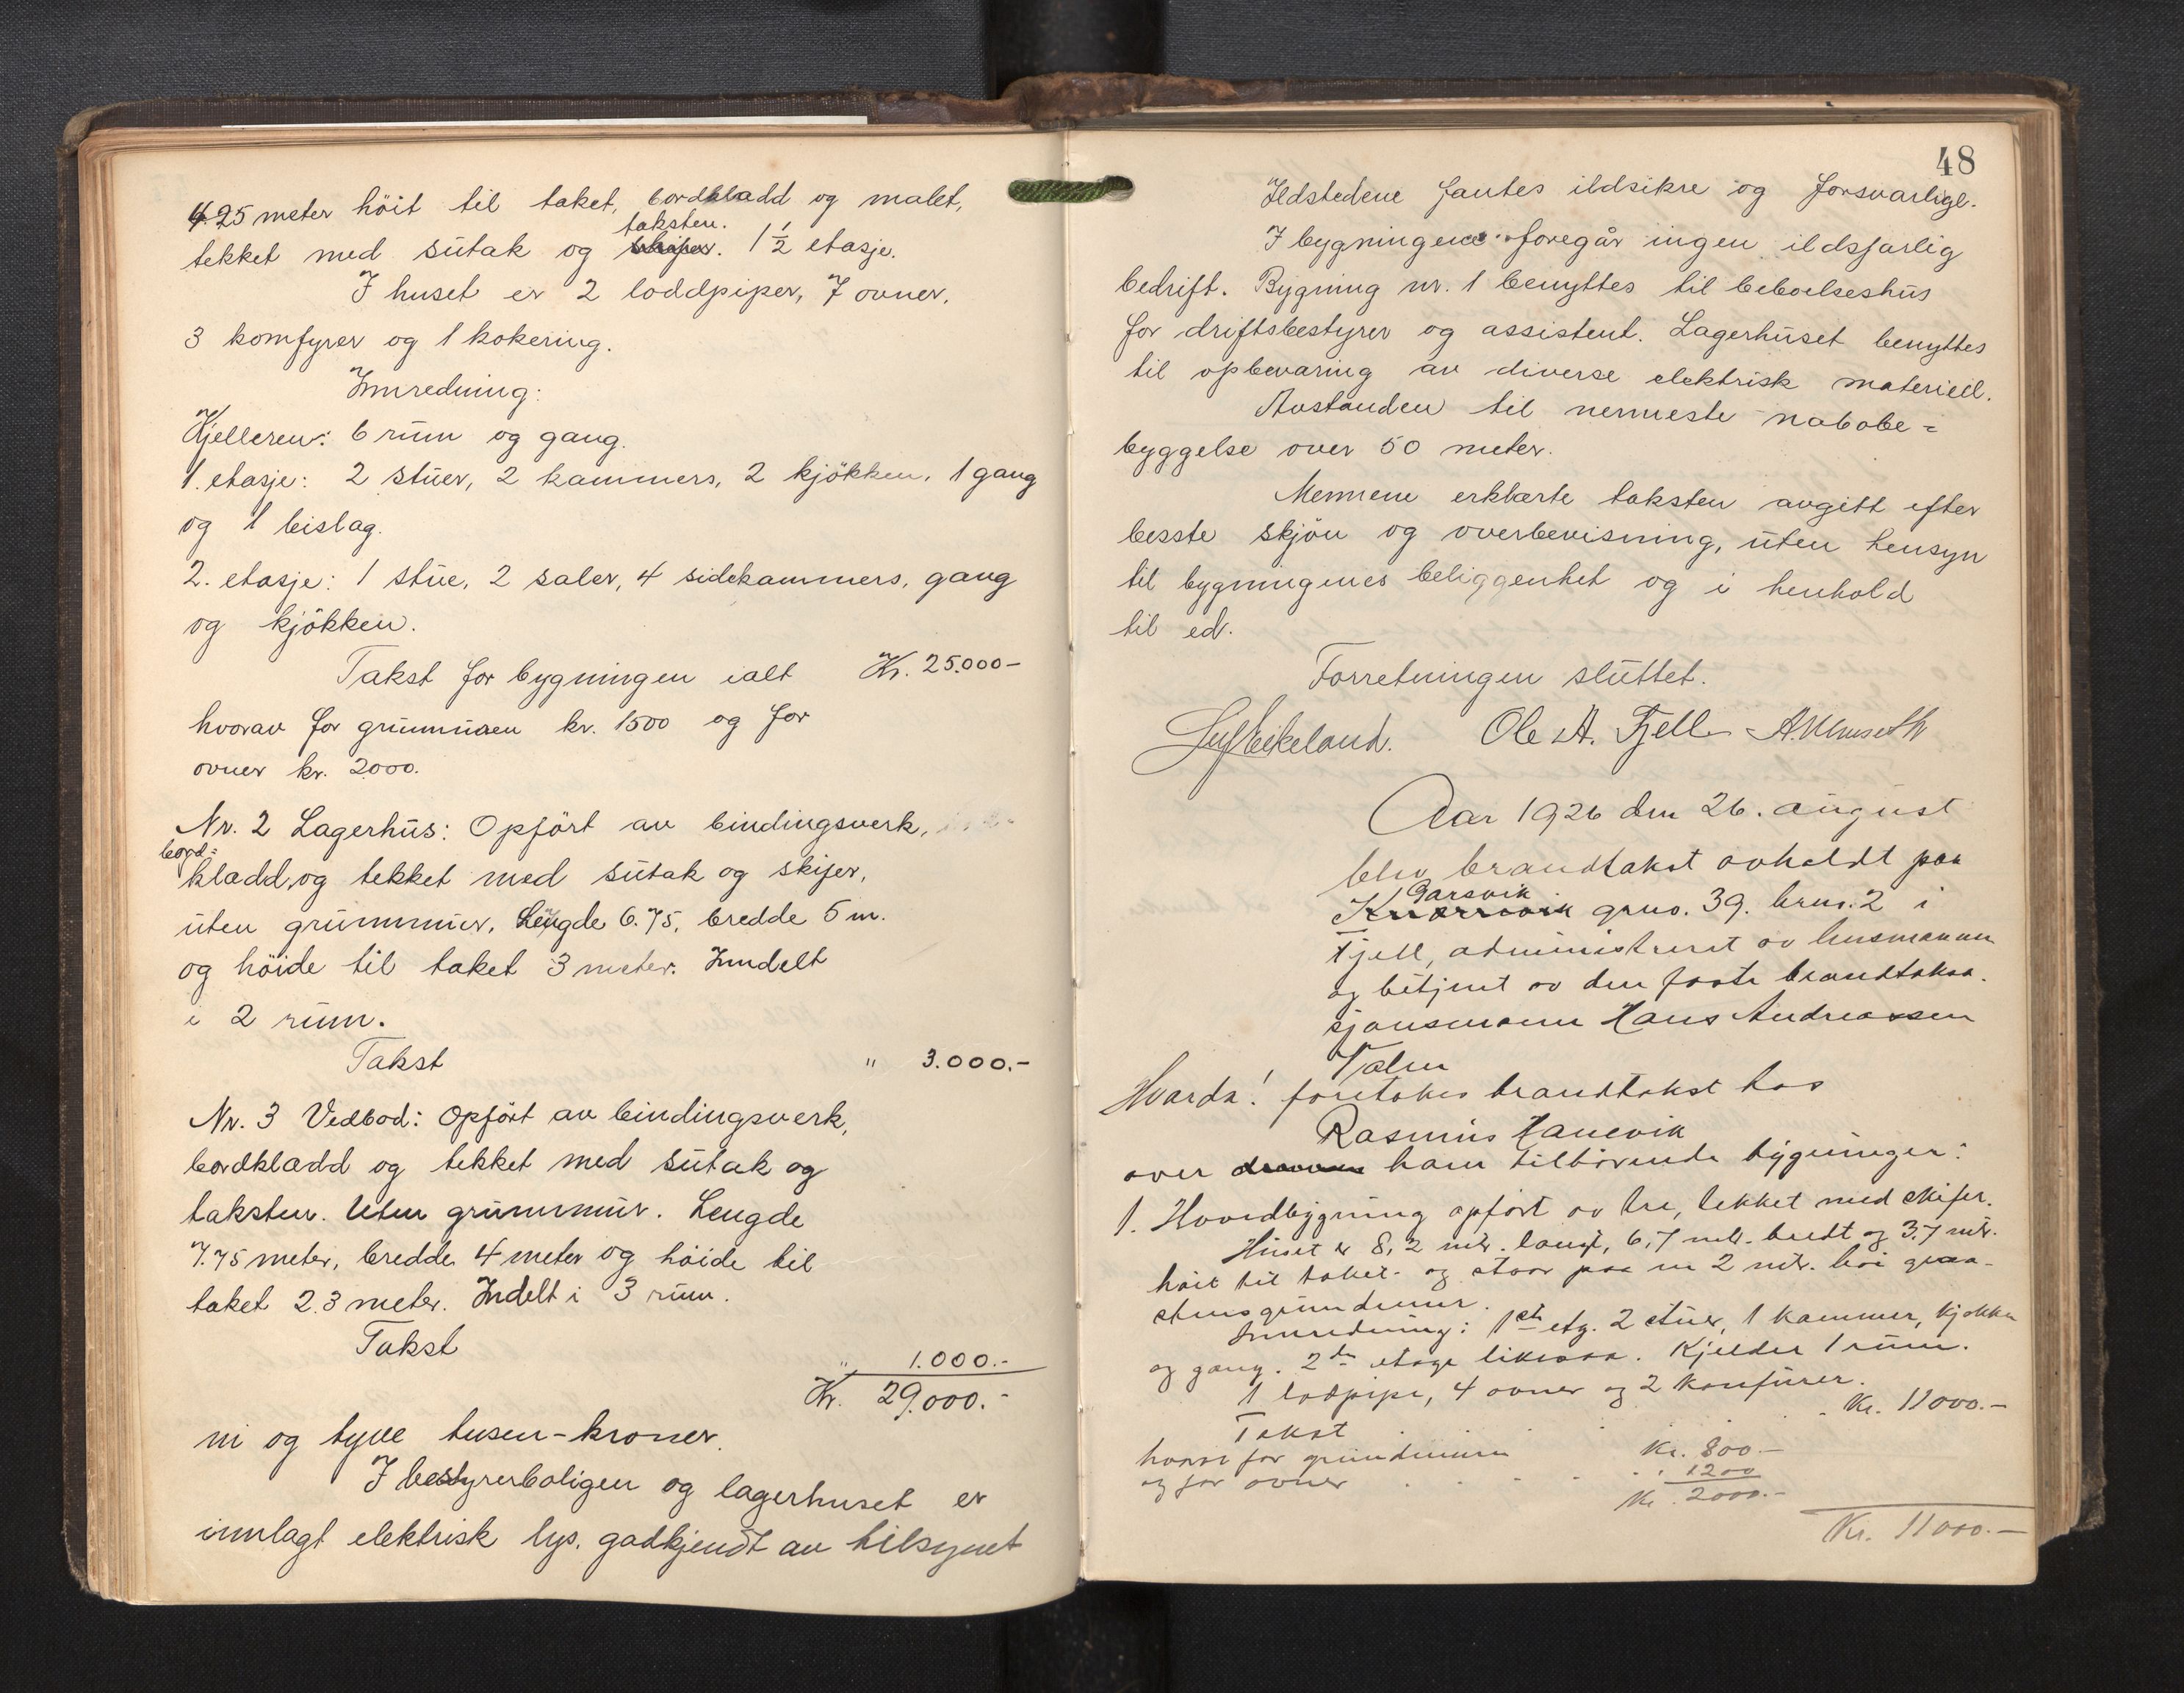 4.25 meter höit til taket, bordkladd og malet,
taksten.
tekket med sütak og skifer. 1 1/2 etasje.
I huset er 2 loddpiper, 7 ovner,
3 komfyrer og 1 kokering.
Innredning:
Kjelleren: 6 rüm og gang.
1. etasje: 2 stüer, 2 kammers, 2 kjökken, 1 gang
og 1 beislag.
2. etasje: 1 stüe, 2 saler, 4 sidekammers, gang
og kjökken.
Takst for bygningen ialt Kr. 25.000-
hvorav for grünmüren kr. 1500 og for
ovner kr. 2000.
Nr. 2 Lagerhüs: Opfört av bindingsverk,
bord=
kladd, og tekket med sütak og skifer,
üten grünnmür. Lengde 6.75, bredde 5 m.
og höide til taket 3 meter. Inndelt
i 2 rüm.
Takst " 3.000.-
Nr. 3 Vedbod: Opfört av bindingsverk,
bordkladd og tekket med sütak og
taksten. Uten grünnmür. Lengde
7.75 meter, bredde 4 meter og höide til
taket 2.3 meter. Indelt i 3 rüm.
Takst " 1.000.-
Kr. 29.000.-
ni og tyve tusen-kroner.
I bestyrerboligen og lagerhuset er
innlagt elektrisk lys, godkjendt av tilsynet
48
Ildstedene fantes ildsikre og forsvarlige.
I bygningene foregår ingen ildsfarlig
bedrift. Bygning nr. 1 benyttes til beboelseshüs
for driftsbestyrer og assistent. Lagerhüset benyttes
til opbevaring av diverse elektrisk materiell.
Avstanden til nermeste nabobe=
byggelse over 50 meter.
Mennene erklærte taksten avgitt efter
besste skjön og overbevisning, üten hensyn
til bygningenes beliggenhet og i henhold
til ed.
Forretningen slüttet.
Eikeland. Ole A. Fjell
Aar 1926 den 26. aügüst
blev brandtakst avholdt paa
Garsvik
grno. 39. brno. 2 i
Fjell, administreret av lensmannen
og betjent av den faste brandtaksa.
sjonsmann Hans Andreassen
Hvarda! foretokes brandtakst hos
Rasmüs Hanevik
over ham tilhörende bygninger:
1. Hovedbygning opfört av tre, tekket med skifer.
Hüset er 8,2 mtr. langt, 6,7 mtr. bredt og 3.7 mtr.
höit til taket og staar paa en 2 mtr. höi graa-
stensgründmur.
Innredning: 1ste etg. 2 stüer, 1 kammer, kjökken
og gang. 2de etage likesaa. Kjelder 1 rüm.
1 lodpipe, 4 ovner og 2 komfürer.
Takst Kr. 11000.-
hvorav for gründmuren Kr. 800.-
og for ovner " 1200
Kr. 2000.-
Kr. 11000.-